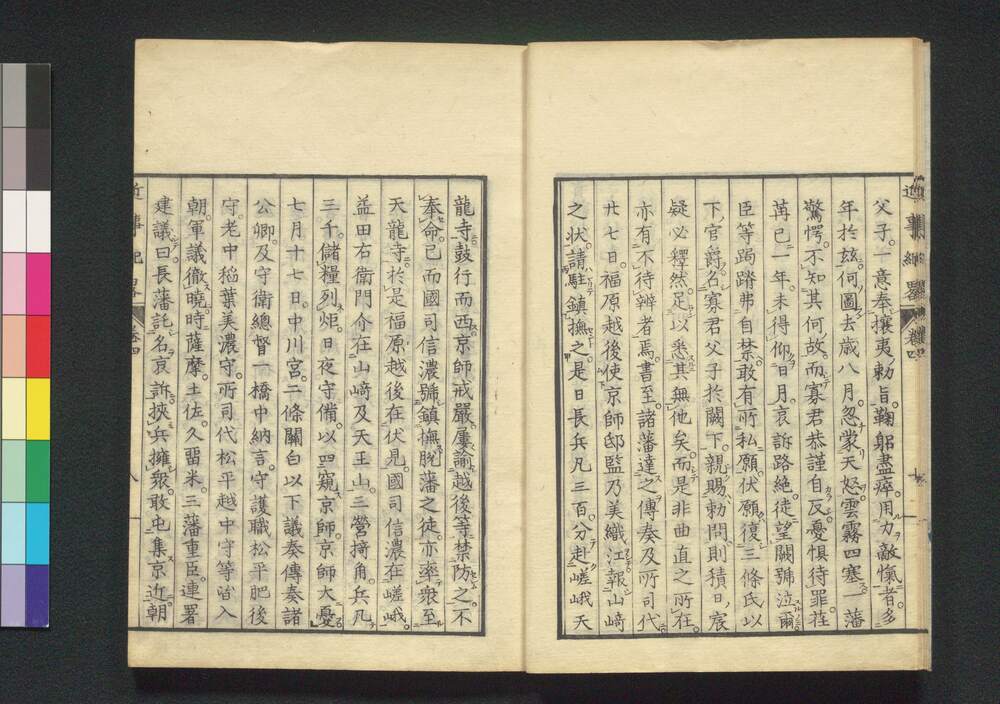 父子。一意奉攘夷勅旨。鞠躬盡瘁。用力敵愾者。多
年於玆。何圖去歳八月。忽蒙天怒。雲霧四塞。一藩
驚愕。不知其何故。而寡君恭謹自反。憂惧待罪。荏
苒已一年。未得仰日月。哀訴路絶。徒望闕號泣爾。
臣等跼蹐弗自禁。敢有所私願。伏願復三條氏以
下官爵。名寡君父子於闕下。親賜勅問。則積日宸
疑必釋然。足以悉其無他矣。而是非曲直之所在。
亦有不待辨者焉。書至。諸藩達之傳奏及所司代。
廿七日。福原越後使京師邸監乃美織江報山﨑
之状。請駐鎮撫之。是日長兵凡三百。分赴嵯峨天
龍寺。鼓行而西。京師戒嚴。屢諭越後等禁防之。不
奉命。已而國司信濃號鎮撫脱藩之徒。亦率衆至
天龍寺。於是福原越後在伏見。國司信濃在嵯峨。
益田右衛門介在山﨑及天王山。三營掎角。兵凡
三千。儲糧列炬。日夜守備。以四窺京師。京師大憂。
七月十七日。中川宮。二條關白以下議奏傳奏諸
公卿。及守衛總督一橋中納言。守護職松平肥後
守。老中稲葉美濃守。所司代松平越中守等皆入
朝。軍議徹曉。時薩摩。土佐。久留米。三藩重臣。連署
建議曰。長藩託名哀訴。挾兵擁衆。敢屯集京近。朝
近事紀畧
卷四
八